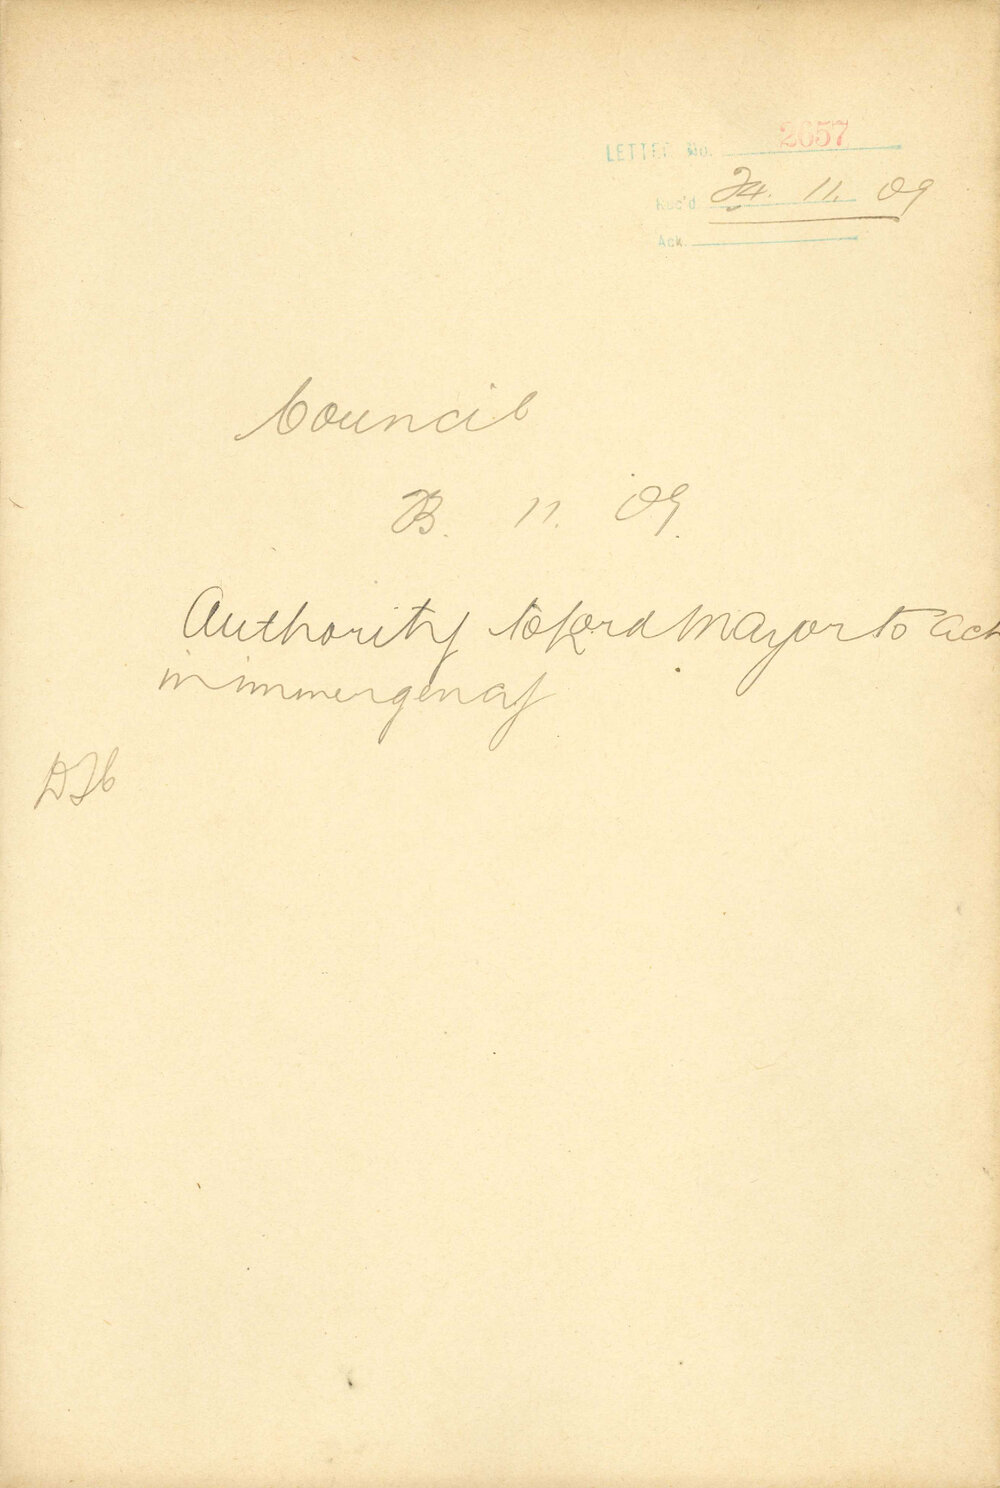 LETTER No. 2657
Rec'd. 24. 11. 09
Ack.
Council
23. 11. 09.
Authority to Lord Mayor to act
in immergency